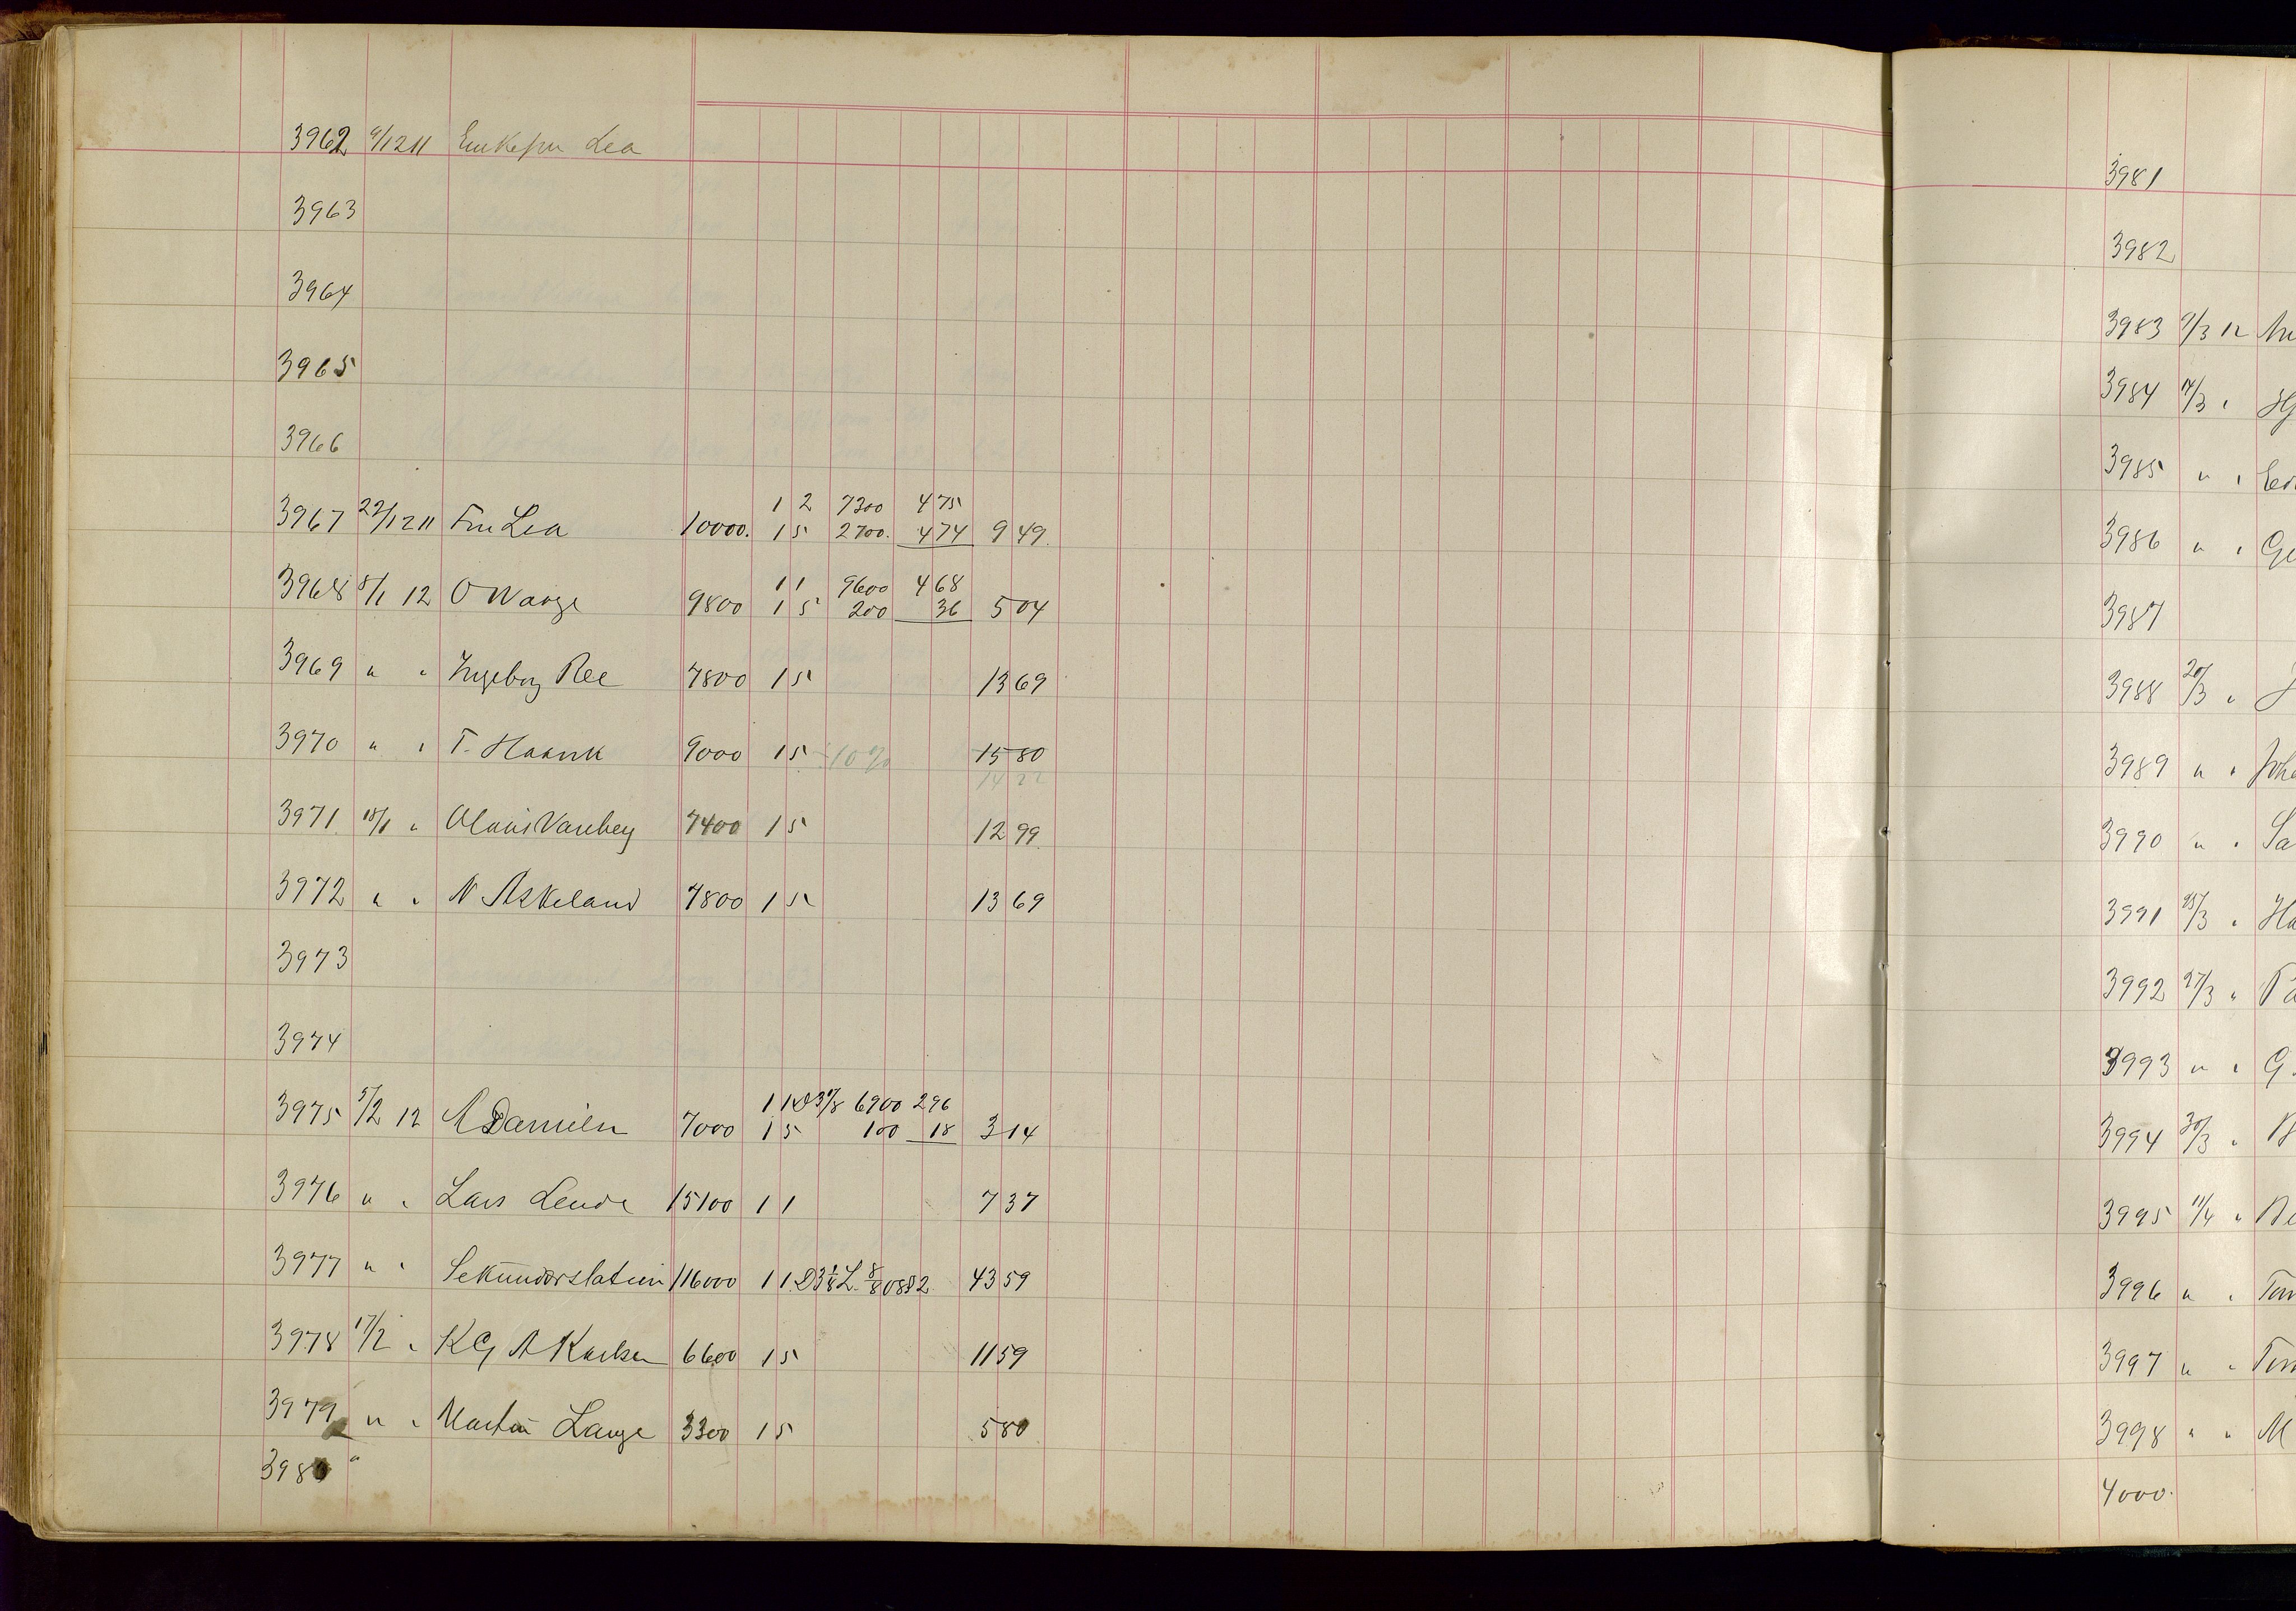 3962 9/12 11 Enkefru Lea
3963
3964
3965
3966
1 2 7300 475
3967 22/12 11 Fru Lea 10000. 1 5 2700. 474 9 49.
1 1 9600 468
3968 8/1 12 O Wange 9800 1 5 200 36 5 04
3969 " " Ingeborg Ree 7800 1 5 13 69
3970 " " T. Haank 9000 1 5 10% 15 80
14 22
3971 18/1 " Olaus Vareberg 7400 1 5 12 99
3972 " " N Askeland 7800 1 5 13 69
3973
3974
1 1 D3 7/8 6900 296
3975 5/2 12 A Danielsen 7000 1 5 100 18 3 14
3976 " " Lars Lende 15100 1 1 7 37
3977 " " Sekundærstation 116000 1 1 D3 1/8 L. 8/8 08 43 59
3978 17/2 " KG A Karlsen 6600 1 5 11 59
3979 " " Martin Lange 3300 1 5 5 80
3980 "
3981
3982
3983 9/3 12
3984 14/3 "
3985 " "
3986 " " Ge
3987
3988 20/3 "
3989 " " Joha
3990 " " Sa
3991 25/3 " Ha
3992 27/3 " Pa
3993 " " G.
3994 30/3 "
3995 11/4 "
3996 " "
3997 " "
3998 " " M
4000.